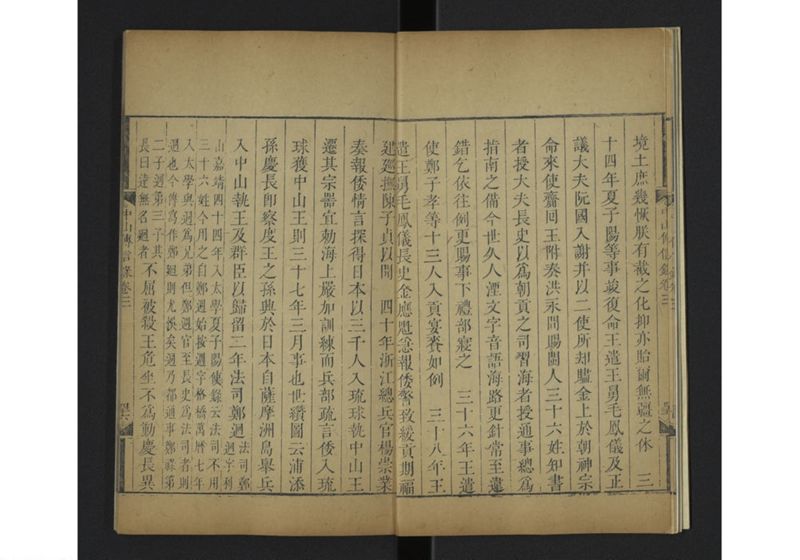 境土庶幾恢朕有截之化抑亦貽爾無疆之休　三
十四年夏子陽等事竣復命王遣王舅毛鳳儀及正
議大夫阮國入謝并以二使所却贐金上於朝神宗
命來使齎回王附奏洪永間賜閩人三十六姓知書
者授大夫長史以爲朝貢之司習海者授通事總爲
指南之備今世久人湮文字音語海路更針常至違
錯乞依往例更賜事下禮部寢之　三十六年王遣
使鄭子孝等十三人入貢宴賚如例　三十八年王
遣王舅毛鳳儀長史金應魁急報倭警致緩貢期福
建廵撫陳子貞以聞　四十年浙江總兵官楊崇業
奏報倭情言探得日本以三千人入琉球執中山王
遷其宗器宜勅海上嚴加訓練而兵部疏言倭入琉
球獲中山王則三十七年三月事也世纘圖云浦添
孫慶長卽察度王之孫興於日本自薩摩洲島舉兵
入中山執王及群臣以歸留二年法司鄭迵
法司鄭
迵字利
山嘉靖四十四年入太學夏子陽使錄云法司不用
三十六姓今用之自鄭迵始按迵字格橋萬曆七年
入太學與迥爲兄弟但鄭迥官至長史爲法司者則
迵也今傳寫作鄭迥則尤悞矣迵乃都通事鄭祿第
二子迥第三子其
長曰達無名迥者
不屈被殺王危坐不爲動慶長異
中山傳信錄卷三
中山傳信錄卷三